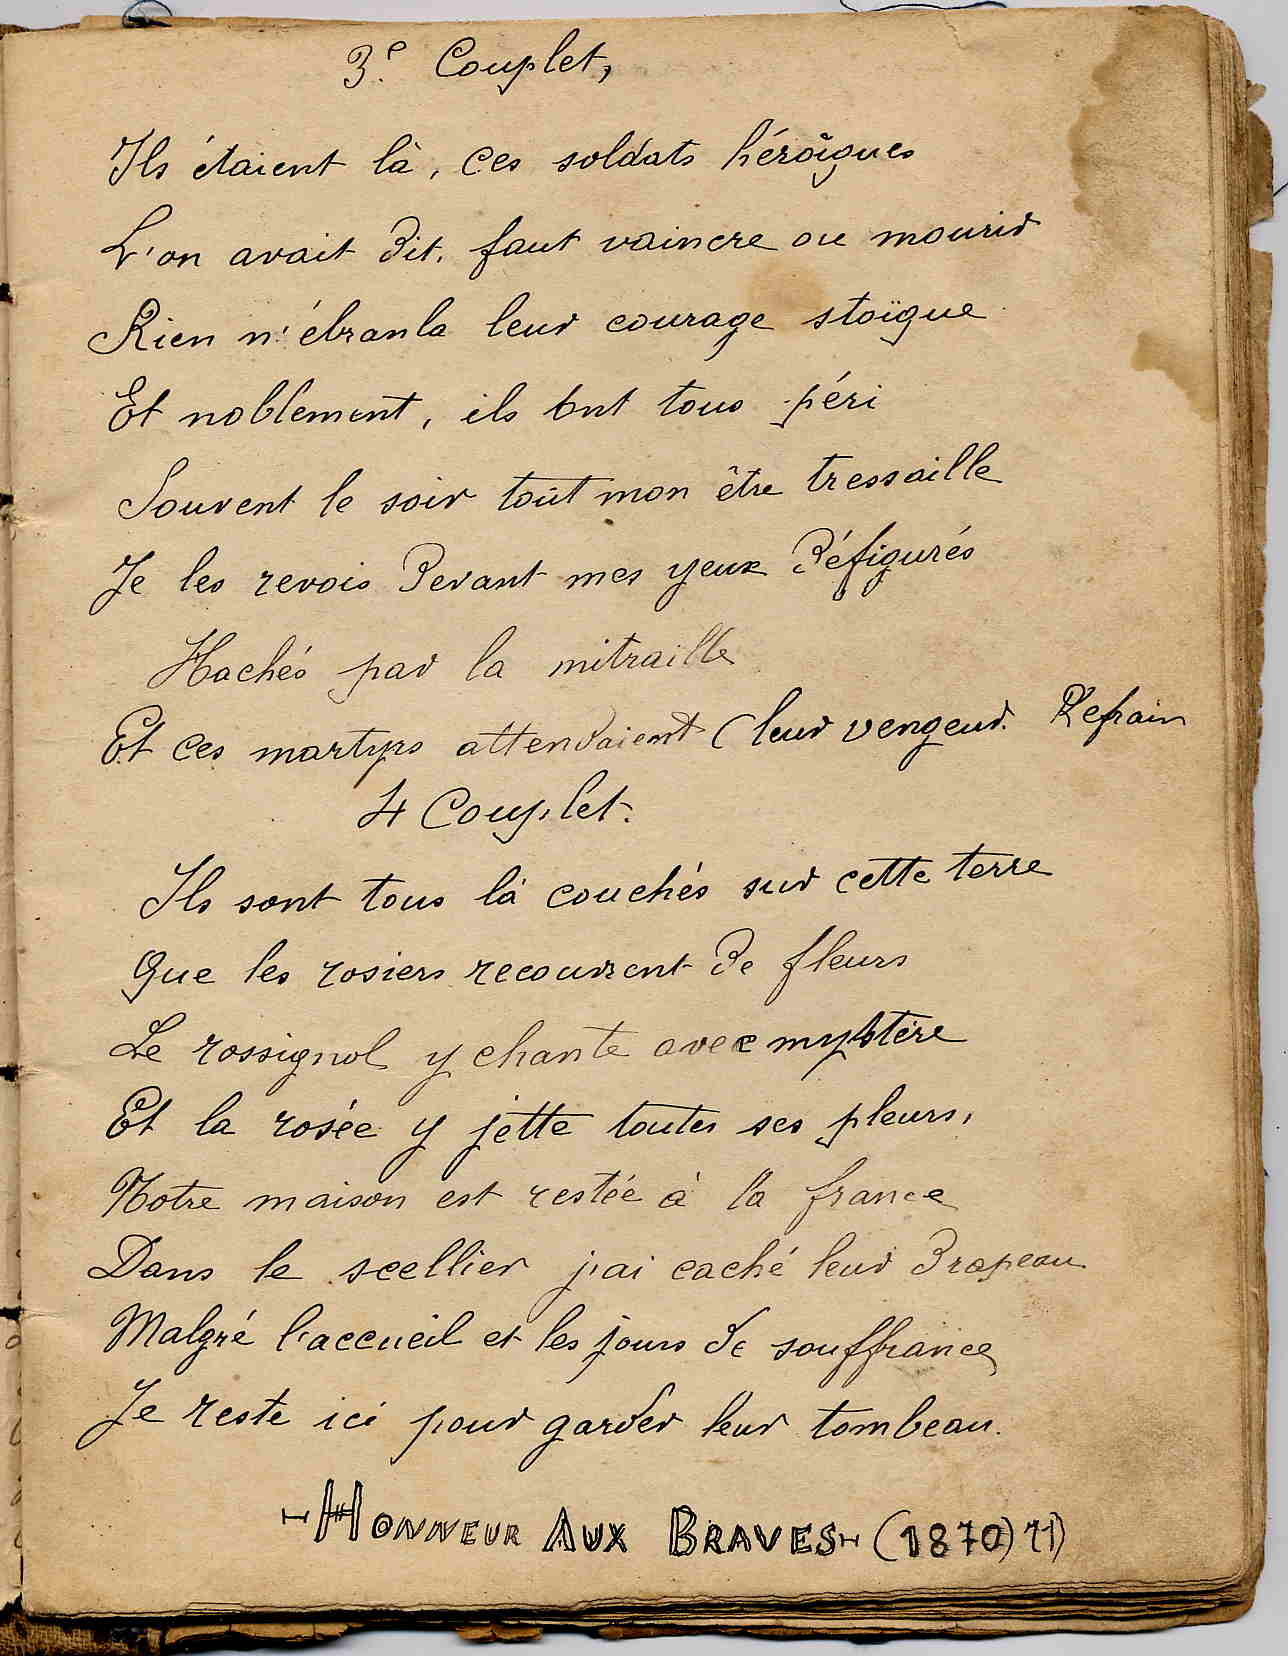 3e. Couplet,
Ils étaient là, ces soldats héroïques
L'on avait dit. faut vaincre ou mourir
Rien n'ébranla leur courage stoïque
Et noblement, ils ont tous péri
Souvent le soir tout mon être tressaille
Je les revois devant mes yeux défigurés
Hachés par la mitraille
Et ces martyrs attendaient (leur vengeur. Refrain
4 Couplet.
Ils sont tous là couchés sur cette terre
Que les rosiers recouvrent de fleurs
Le rossignol y chante avec mystère
Et la rosée y jette toutes ses pleurs,
Notre maison est restée à la france
Dans le scellier j'ai caché leur drapeau
Malgré l'accueil et les jours de souffrance
Je reste ici pour garder leur tombeau.
HONNEUR AUX BRAVES (1870) 71)